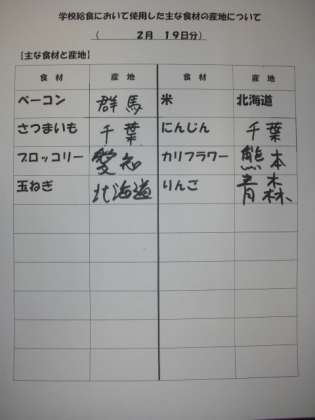 学校給食において使用した主な食材の産地について
( 2月 19日分)
【主な食材と産地】
食材 産地 食材 産地
ベーコン 群馬 米 北海道
さつまいも 千葉 にんじん 千葉
ブロッコリー 愛知 カリフラワー 熊本
玉ねぎ 北海道 りんご 青森